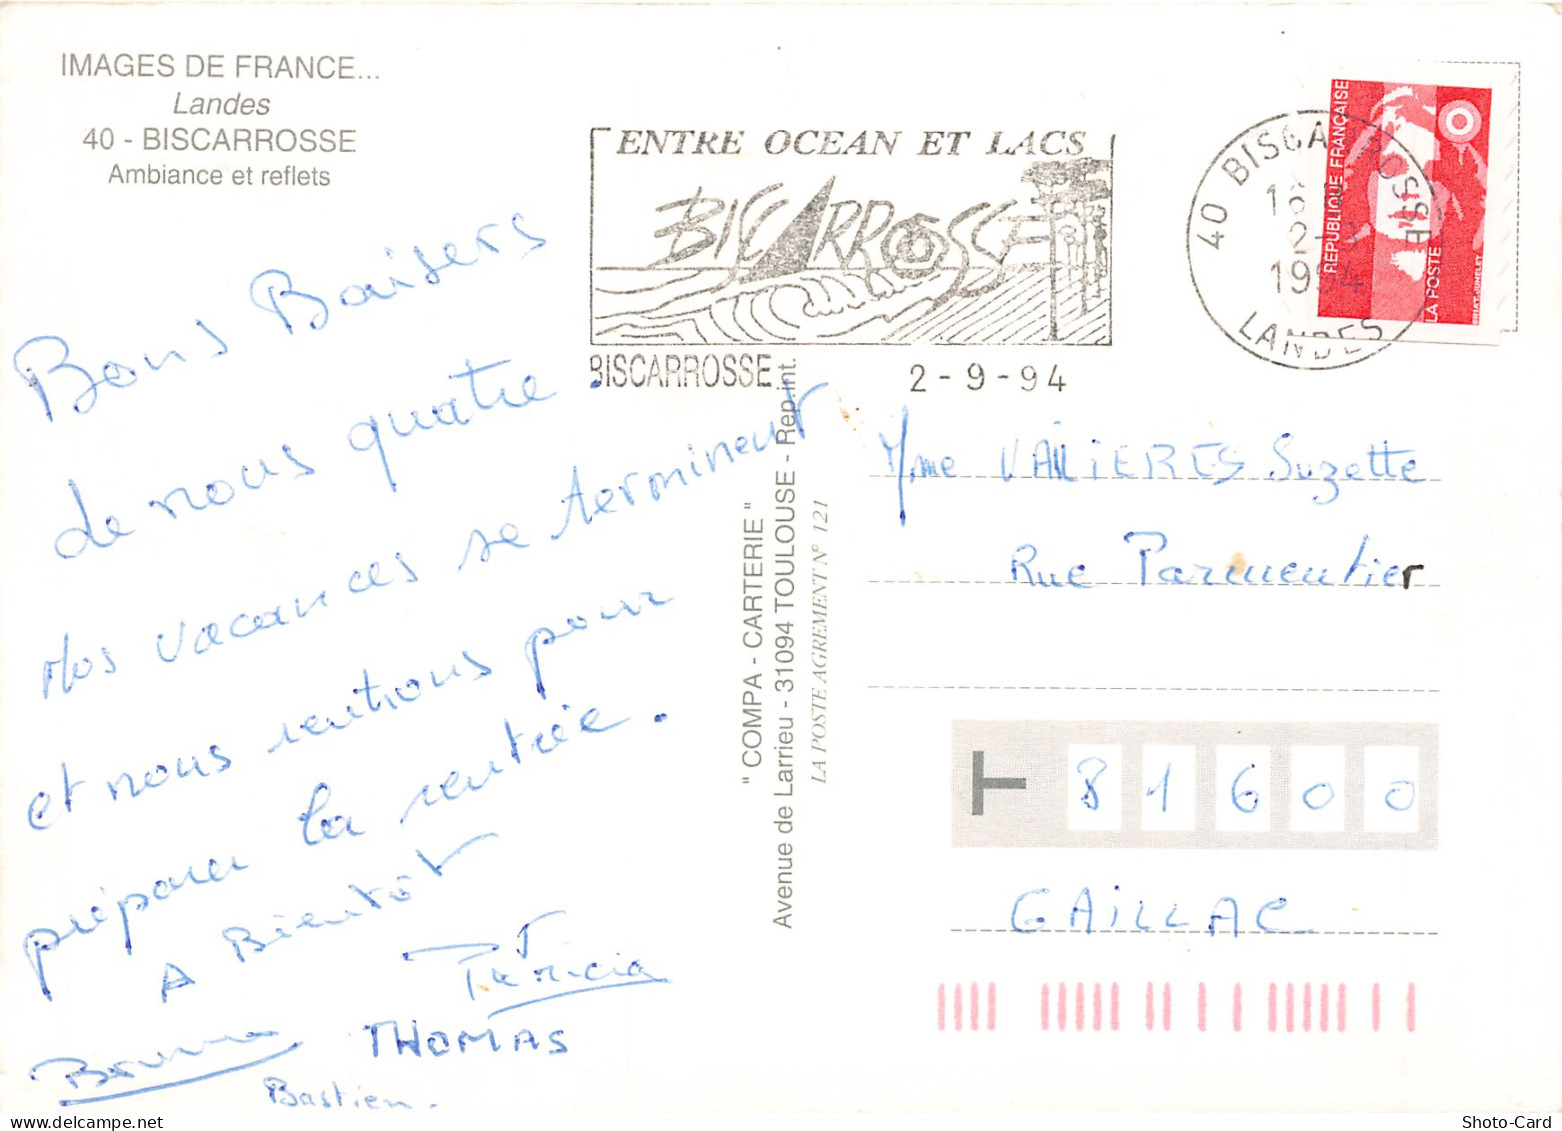 IMAGES DE FRANCE...
Landes
40 - BISCARROSSE
Ambiance et reflets
ENTRE OCEAN ET LACS
BISCARROSSE
BISCARROSSE
2-9-94
40 BISCARROSSE
16 H
2-9
1994
LANDES
REPUBLIQUE FRANÇAISE
LA POSTE
Bons Baisers
de nous quatre.
Nos vacances se terminent
et nous rentrons pour
préparer la rentrée.
A Bientôt
Patricia
Bruno THOMAS
Bastien.
" COMPA - CARTERIE "
Avenue de Larrieu - 31094 TOULOUSE - Rep.int.
LA POSTE AGREMENT N° 121
Mme VALIERES Suzette
Rue Parmentier
T 81600
GAILLAC
Shoto-Card